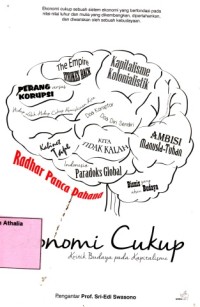 Ekonomi cukup sebuah sistem ekonomi yang berfondasi pada
nilai-nilai luhur dan mulia yang dikembangkan, dipertahankan,
dan diwariskan oleh sebuah kebudayaan.
The Empire
STRIKES BACK
Kapitalisme
Kolonialistik
PERANG
KORUPSI
Dosa Koruptor
Dosa Diri Sendiri
KITA
TIDAK KALAH
AMBISI
Manusia-Tuhan
Kalimat
Indonesia
Paradoks Global
Bisnis yang
Budaya
Radhar Panca Dahana
Athalia
onomi Cukup
Kritik Budaya pada Kapitalisme
Pengantar Prof. Sri-Edi Swasono